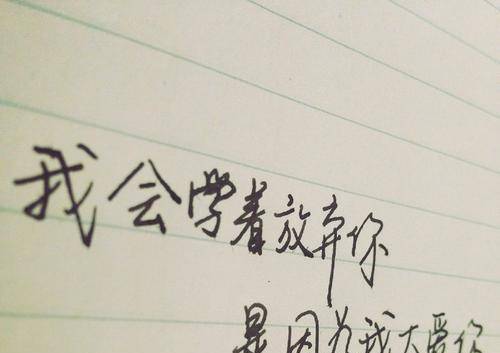 我会学着放弃你
是因为我太爱你